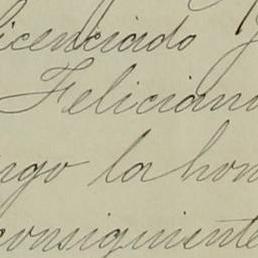 licenciado
Felician
ngo la hon
consiguiente